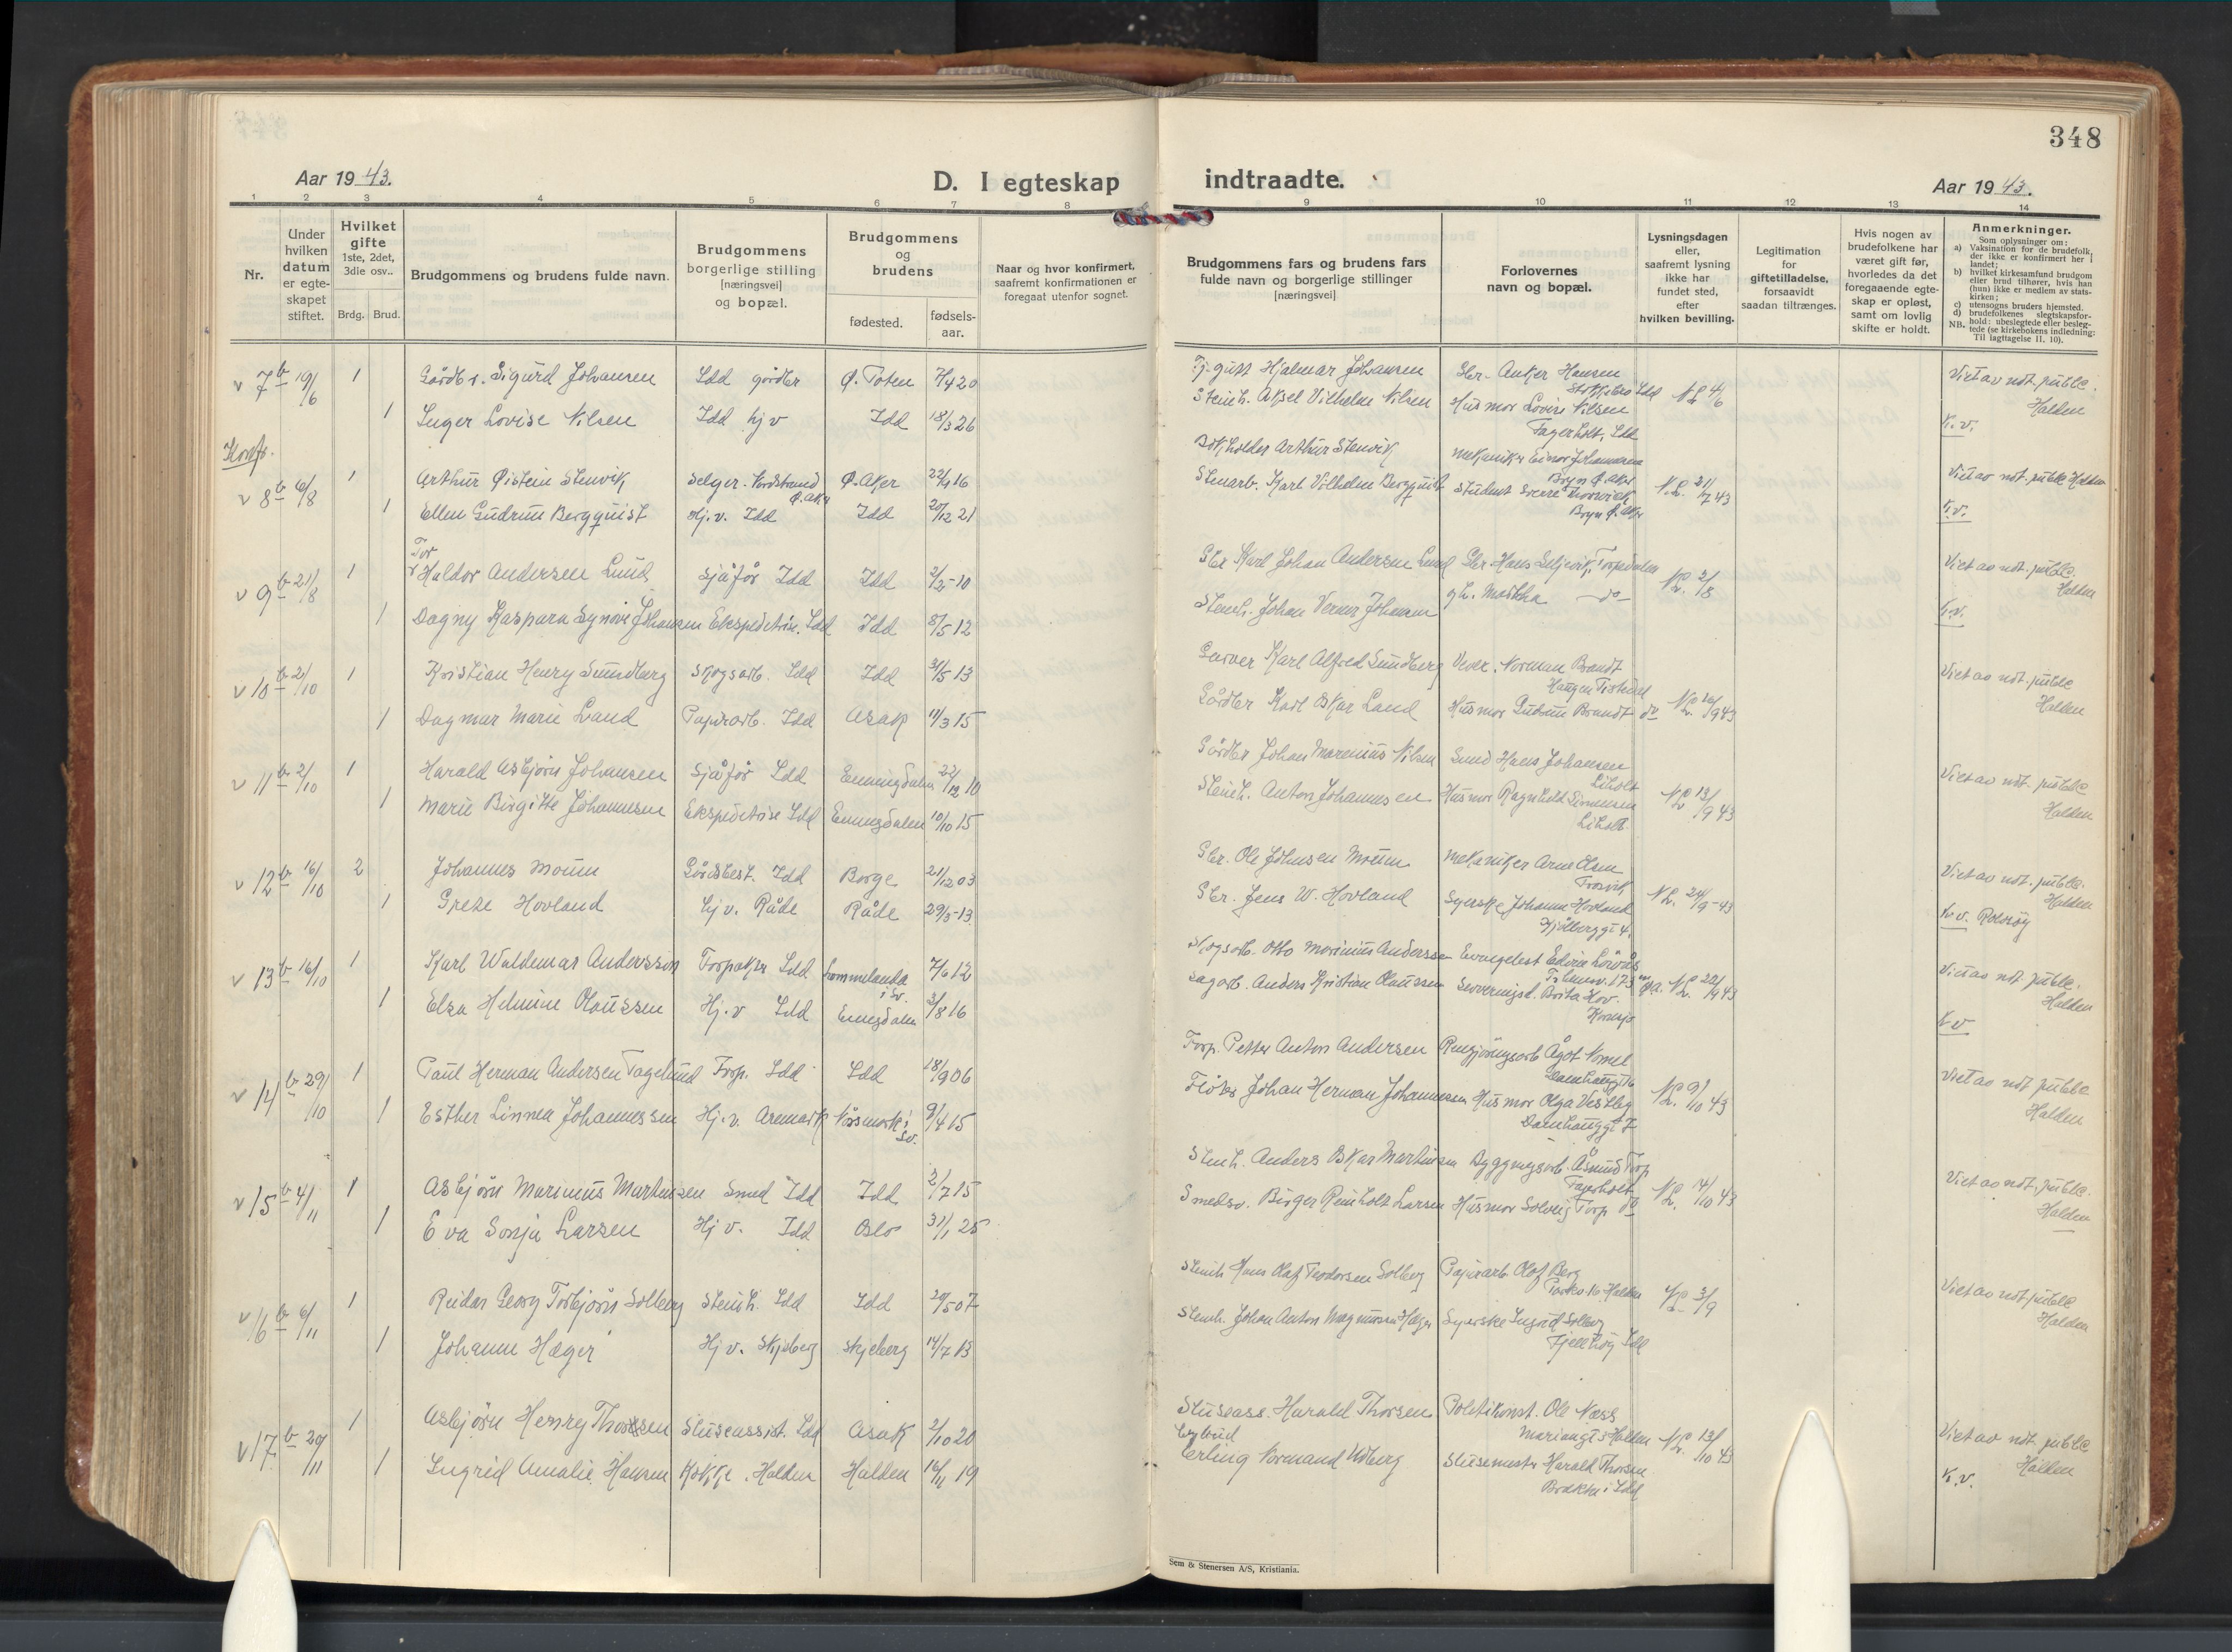 348
Aar 19 43.
D. I egteskap
indtraadte.
Aar 19 43.
1 2 3 4 5 6 7 8 9 10 11 12 13 14
Nr.
Under hvilken datum er egte-skapet stiftet.
Hvilket gifte 1ste, 2det, 3die osv..
Brdg. Brud.
Brudgommens og brudens fulde navn.
Brudgommens borgerlige stilling [næringsvei] og bopæl.
Brudgommens og brudens
fødested.
fødsels-aar.
Naar og hvor konfirmert, saafremt konfirmationen er foregaat utenfor sognet.
Brudgommens fars og brudens fars fulde navn og borgerlige stillinger [næringsvei]
Forlovernes navn og bopæl.
Lysningsdagen eller, saafremt lysning ikke har fundet sted, efter hvilken bevilling.
Legitimation for giftetilladelse, forsaavidt saadan tiltrænges.
Hvis nogen av brudefolkene har været gift før, hvorledes da det foregaaende egte-skap er opløst, samt om lovlig skifte er holdt.
Anmerkninger.
Som oplysninger om:
a) Vaksination for de brudefolk, der ikke er konfirmert her i landet;
b) hvilket kirkesamfund brudgom eller brud tilhører, hvis han (hun) ikke er medlem av stats-kirken;
c) utensogns bruders hjemsted.
d) brudefolkenes slegtskapsfor-hold: ubeslegtede eller besleg-tede (se kirkebokens indledning: Til iagttagelse II. 10).
NB.
v 7 b 19/6 1 Gårdbr. Sigurd Johansen Idd gårdbr Ø. Toten 7/4 20 Hjalmar Johansen Gbr. Anker Hansen
Stokkebro Idd N.L. 4/6 Viet av not. public. Halden
1 Inger Lovise Nilsen Idd hj v Idd 18/3 26 Stenh. Aksel Vilhelm Nilsen Husmor Lovise Nilsen
Fagerholt, Idd K.v.
v 8 b 6/8 1 Arthur Øistein Stenvik Selger. Nordstrand Ø. Aker Ø. Aker 22/4 16 Bokholder Arthur Stenvik Mekaniker Einar Johannesen
Bryn Ø. Aker N.L. 21/7 43 Viet av not. public Halden
1 Ellen Gudrun Bergquist Hj.v. Idd Idd 20/12 21 Stenarb. Karl Vilhelm Bergquist Student Sverre
Bryn Ø. Aker K.v.
Tor
v 9 b 21/8 1 Haldor Andersen Lund Sjåfør Idd Idd 2/2-10 Gbr Karl Johan Andersen Lund Gbr. Hans N.L. 2/8 Viet av not. public. Halden
1 Dagny Kaspara Synøve Johansen Ekspeditrise. Idd Idd 8/5 12 Stenh. Johan Verner Johansen gh. Martha — do — K.v.
v 10 b 2/10 1 Kristian Henry Sundberg Skogsarb. Idd Idd 31/5 13 Garver Karl Alfred Sundberg Vever. Norman Brandt
Haugen Tistedal Viet av not. public Halden
1 Dagmar Marie Land Papirarb. Idd Asak 11/3 15 Gårdbr Karl Oskar Land Husmor Gudrun Brandt do N.L. 16/9 43
v 11 b 2/10 1 Harald Asbjørn Johansen Sjåfør Idd Enningdalen 22/12 10 Gårdbr Johan Marenius Nilsen Smed Hans Johansen
Liholt N.L. 13/9 43 Viet av not. public Halden
1 Marie Birgitte Johannesen Ekspeditrise Idd Enningdalen 10/10 15 Stenh. Anton Johannesen Husmor Ragnhild Simensen
Liholt
v 12 b 16/10 2 Johannes Moum Gårdsbest. Idd Borge 21/12 03 Gbr. Ole Johnsen Moum Mekaniker Arne Olsen
Trosvik N.L. 24/9-43 Viet av not. public. Halden
1 Grete Hovland hj v. Råde Råde 29/3-13 Gbr. Jens W. Hovland Syerske Johanne Hovland
Kjølberggt 4. K.v. Rolvsøy
v 13 b 16/10 1 Karl Waldemar Andersson Forpakter Idd Lommelanda i Sv. 7/6 12 Skogsarb. Otto Marinius Andersson Evangelist Edvin N.L. 22/9 43 Viet av not. public. Halden
1 Elsa Helmine Olaussen Hj.v Idd Enningdalen 3/8 16 Sagarb. Anders Kristian Olaussen Brita Hov.
Kornsjø K.v
v 14 b 29/10 1 Paul Herman Andersen Fagelund Forp. Idd Idd 18/9 06 Forp. Petter Anton Andersen Rengjøringsarb Ågot
Damhauggt 16 N.L. 9/10 43 Viet av not public Halden
1 Esther Linnea Johannessen Hj.v. Aremark Nössemark i Sv. 9/4 15 Fløter Johan Herman Johannessen Husmor Olga Vestby
Damhauggt 7
v 15 b 4/11 1 Asbjørn Marinius Martinsen Smed Idd Idd 2/7 15 Stenh. Anders Oskar Martinsen Byggningsarb. Åsmund Torp
Fagerholt N.L. 14/10 43 Viet av not. public. Halden
1 Eva Sonja Larsen Hj v. Idd Oslo 31/1 25 Smedsv. Birger Reinholt Larsen Husmor Solveig Torp do
v 16 b 6/11 1 Reidar Georg Torbjørn Solberg Stenh. Idd Idd 29/5 07 Stenh Hans Olaf Teodorsen Solberg Papirarb Olaf Berg
Parkv. 16 Halden N.L. 3/9 Viet av not public Halden
1 Johanne Hæger Hj v. Skjeberg Skjeberg 14/7 13 Stenh. Johan Anton Magnussen Hæger Syerske Ingrid Solberg
Idd
v 17 b 29/11 1 Asbjørn Henry Thorssen Sluseassist. Idd Asak 2/10 20 Sluseass. Harald Thorsen Politikonst. Ole Næss
Halden N.L. 13/10 43 Viet av not. public Halden
1 Ingrid Amalie Hansen Kokke. Halden Halden 16/11 19 Erling Normand Udberg Slusemester Harald Thorsen
Brekke i Idd K.v.
Sem & Stenersen A/S, Kristiania.